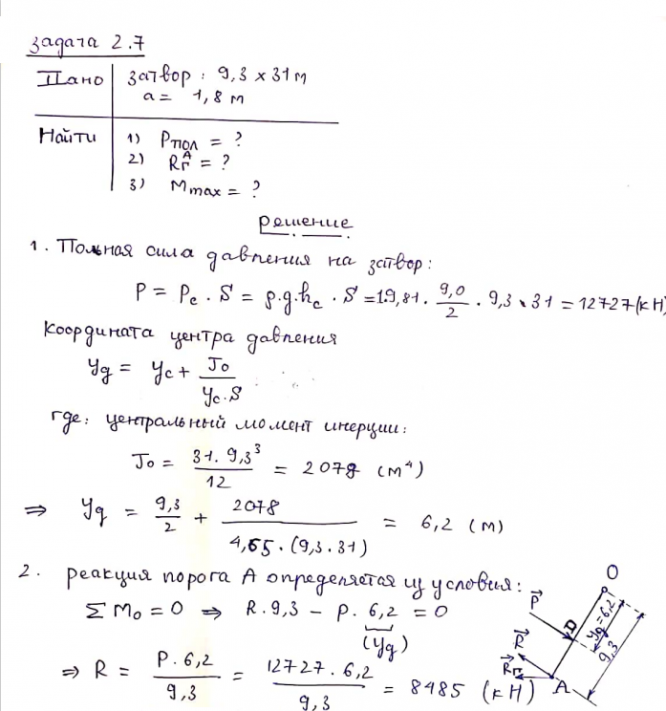 задача 2.7
Дано затвор: 9,3 x 31 м
a = 1,8 м
Найти 1) Pпол = ?
2) Rгᴬ = ?
3) Mmax = ?
решение
1. Полная сила давления на затвор:
P = Pc · S = ρ·g·hc · S = 1·9,81 · 9,0/2 · 9,3 x 31 = 12727 (кН)
координата центра давления
Yд = Yc + J₀/(Yc·S)
где: центральный момент инерции:
J₀ = 31·9,3³/12 = 2078 (м⁴)
⇒ Yд = 9,3/2 + 2078/(4,65·(9,3·31)) = 6,2 (м)
2. реакция порога A определяется из условия:
ΣM₀ = 0 ⇒ R·9,3 − P·6,2 = 0
(Yд)
⇒ R = P·6,2/9,3 = 12727·6,2/9,3 = 8485 (кН)
O
P
D
Yд=6,2
9,3
R
Rг
A